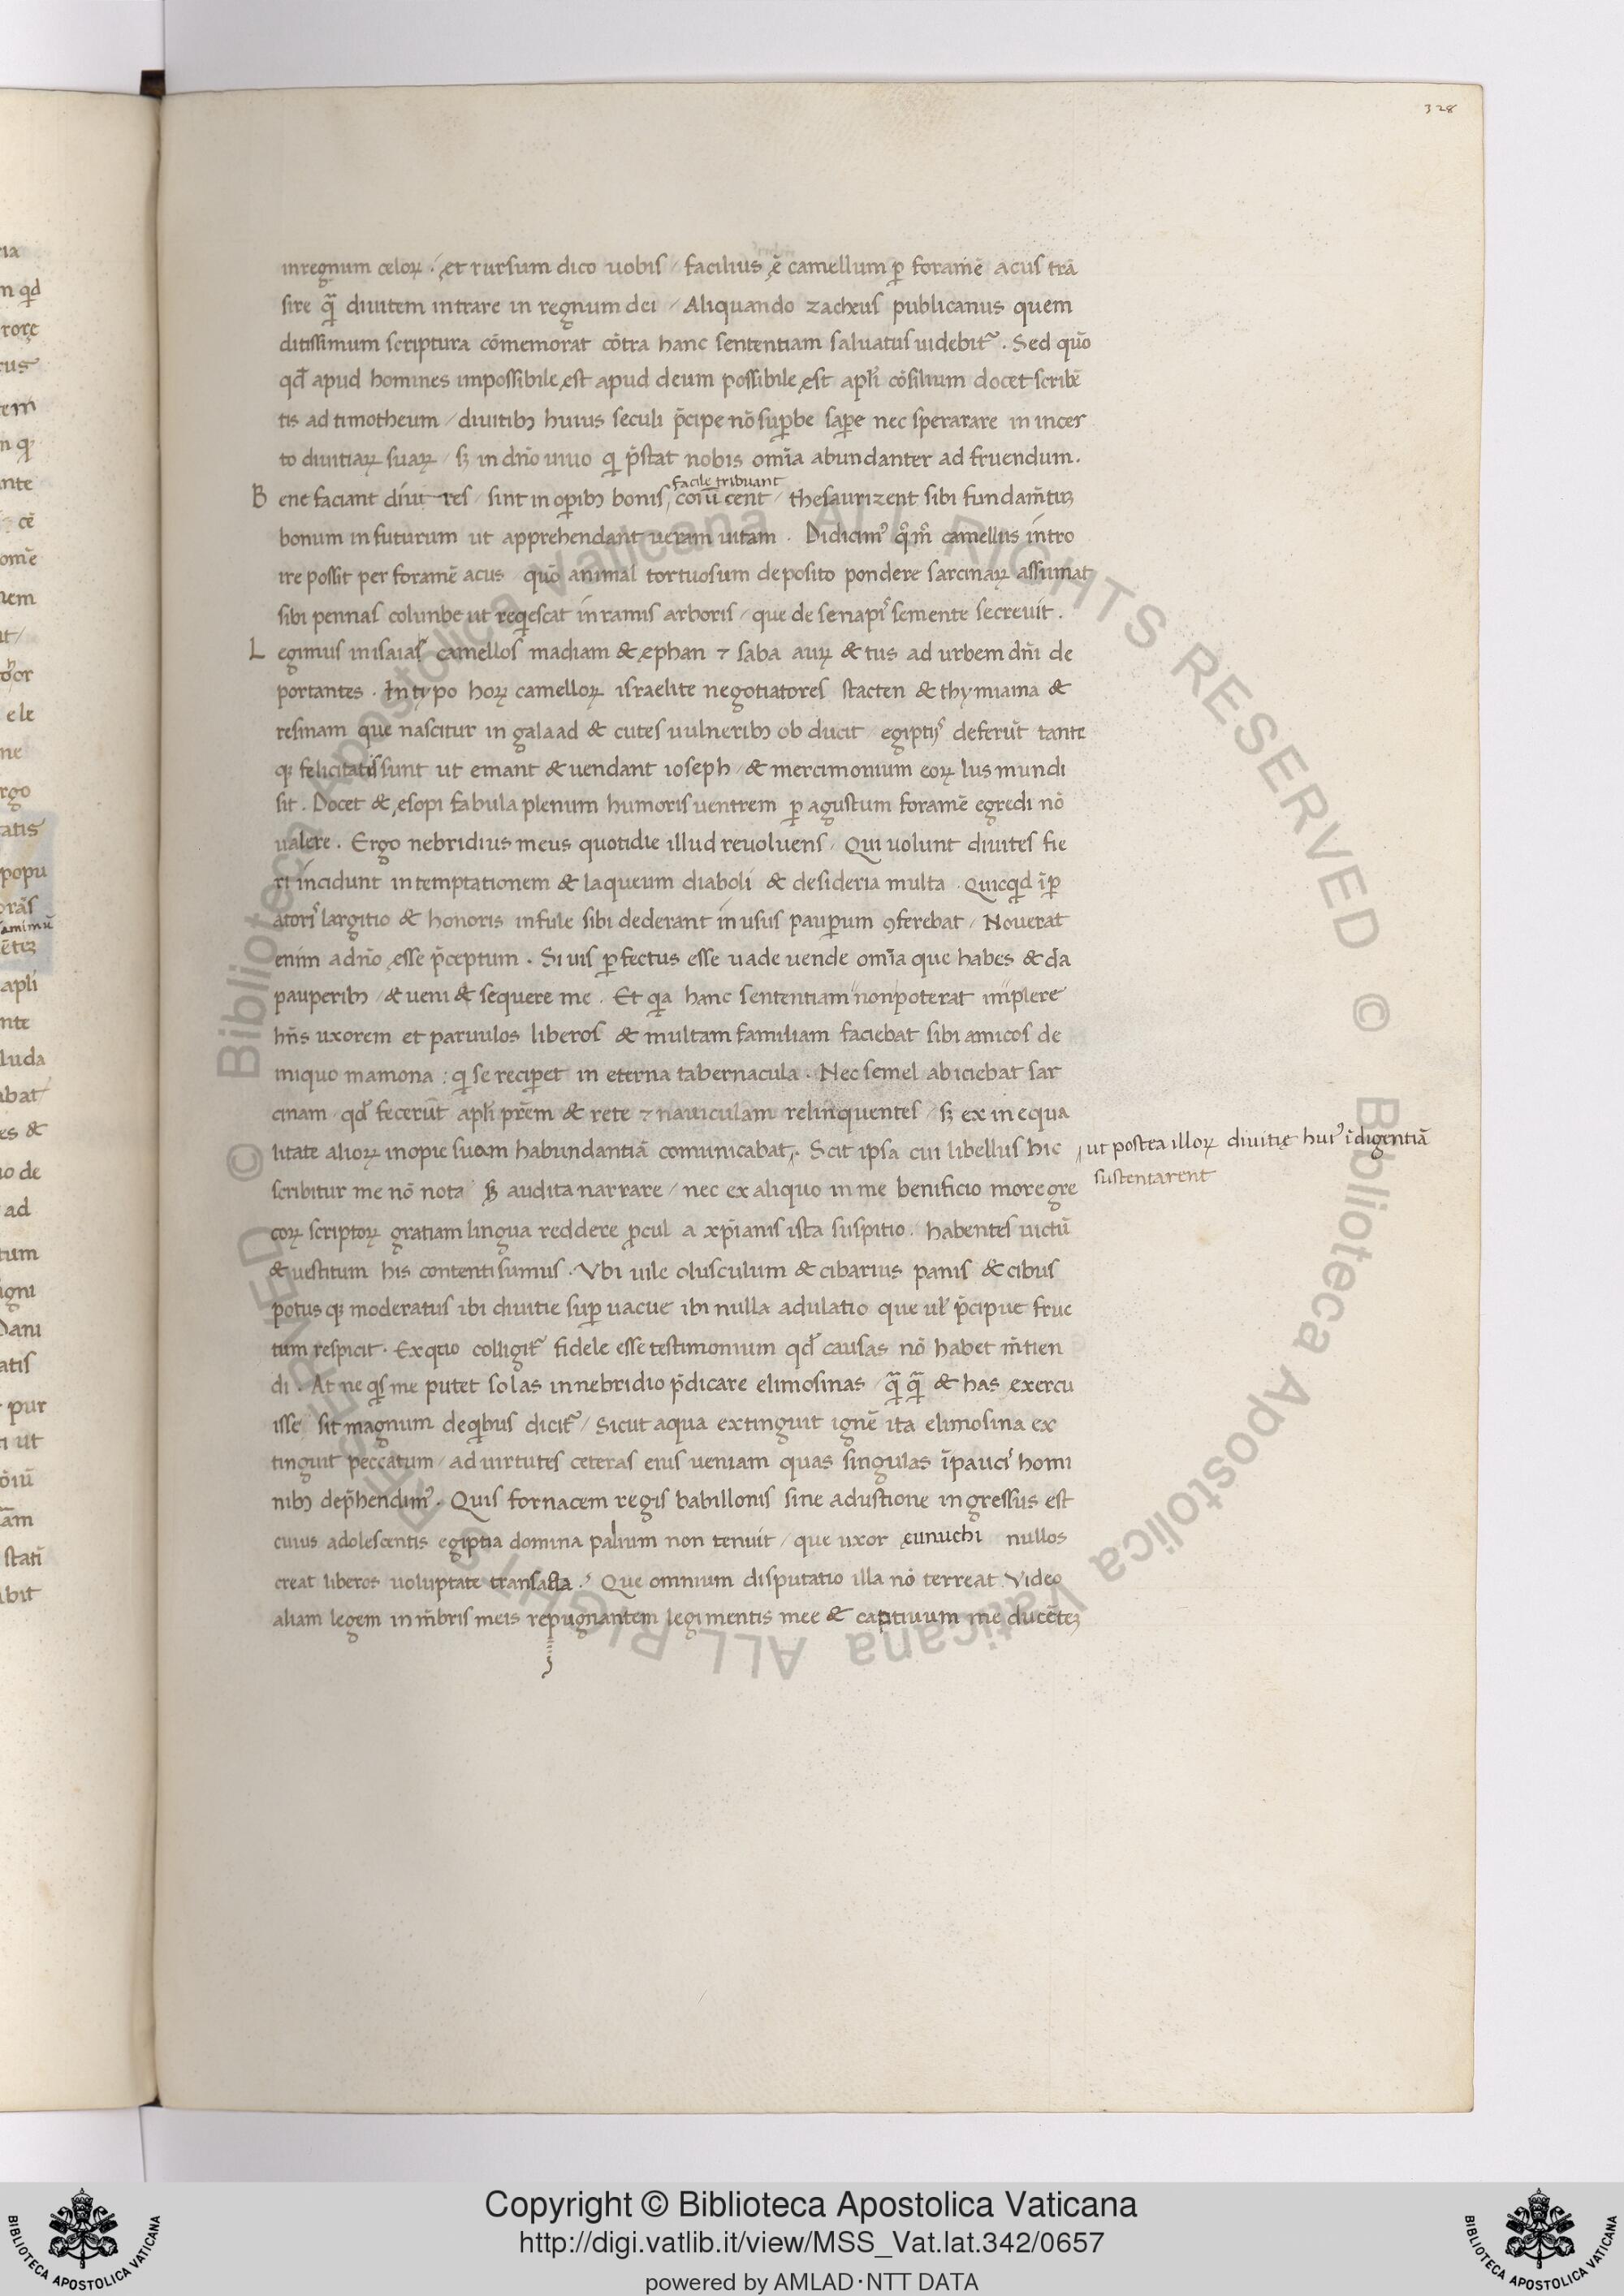 328
in regnum celoꝝ . et rursum dico uobis / facilius ę̄ camellum ꝑ foramē acus trā
sire qͣ̄ diuitem intrare in regnum dei / Aliquando zacheus publicanus quem
ditissimum scriptura cōmemorat cōtra hanc sententiam saluatus uidebitᷣ . Sed quō
qd̄ apud homines impossibile ęst apud deum possibile ęst apl̄i cōsilium docet scribē
tis ad timotheum / diuitibꝫ huius seculi p̄cipe nō suꝑbe saꝑe nec sperarare in incer
to diuitiaꝝ suaꝝ / sꝫ in dn̄o uiuo qͥ p̄stat nobis om̄ia abundanter ad fruendum .
facile tribuant
B ene faciant diuites / sint in oꝑibꝫ bonis, coīu cent / thesaurizent sibi fundam̄tuꝫ
bonum in futurum ut apprehendant ueram uitam . Didicimꝰ qͦm̊ camellus intro
ire possit per foramē acus quō animal tortuosum deposito pondere sarcinaꝝ assumat
sibi pennas colunbe ut reqͥescat in ramis arboris / que de senapis semente secreuit .
L egimus in isaias camellos madiam & ephan ⁊ saba auꝝ & tus ad urbem dn̄i de
portantes . In typo hoꝝ camelloꝝ israelite negotiatores stacten & thymiama &
resinam que nascitur in galaad & cutes uulneribꝫ ob ducit egiptijs deferūt tante
qꝫ felicitatis sunt ut emant & uendant ioseph / & mercimonium eoꝝ lus mundi
sit . Docet & ęsopi fabula plenum humoris uentrem ꝑ agustum foramē egredi nō
ualere . Ergo nebridius meus quotidie illud reuoluens / Qui uolunt diuites fie
ri incidunt in temptationem & laqueum diaboli & desideria multa . Quicqͥd īꝑ
atoris largitio & honoris infule sibi dederant in usus pauꝑum ꝯferebat / Nouerat
enim a dn̄o ęsse p̄ceptum . Si uis ꝑfectus esse uade uende om̄ia que habes & da
pauperibꝫ / & ueni & sequere me . Et qͥa hanc sententiam non poterat implere
hn̄s uxorem et paruulos liberos & multam familiam faciebat sibi amicos de
iniquo mamona : qͥ se reciꝑet in eterna tabernacula . Nec semel abiciebat sar
cinam / qd̄ fecerūt apl̄i pr̄em & rete ⁊ nauiculam relinquentes / sꝫ ex inequa
litate alioꝝ inopie suam habundantiā comunicabat . Scit ipsa cui libellus hic
ut postea illoꝝ diuitię huiꝰ īdigentiā
sustentarent
scribitur me nō nota sꝫ audita narrare / nec ex aliquo in me benificio more gre
coꝝ scriptoꝝ gratiam lingua reddere ꝓcul a xp̄ianis ista suspitio . habentes uictū
& uestitum his contenti sumus . Vbi uile olusculum & cibarius panis & cibus
potus qꝫ moderatus ibi diuitie suꝑ uacue ibi nulla adulatio que ul̄ p̄cipue fruc
tum respicit . Ex quo colligitᷣ fidele esse testimonium qd̄ causas nō habet m̄tien
di . At ne qͥs me putet solas in nebridio p̄dicare elimosinas / qͣ̄ qͣ̄ & has exercu
isse sit magnum de qͥbus dicitᷣ / Sicut aqua extinguit ignē ita elimosina ex
tinguit peccatum / ad uirtutes ceteras eius ueniam quas singulas ī paucis homi
nibꝫ dep̄hendimꝰ . Quis fornacem regis babillonis sine adustione ingressus est
cuius adolescentis egiptia domina palium non tenuit / que uxor eunuchi nullos
creat liberos uoluptate transacta . Que omnium disputatio illa nō terreat . Video
aliam legem in m̄bris meis repugnantem legi mentis mee & captiuum me ducēteꝫ
Copyright © Biblioteca Apostolica Vaticana
http://digi.vatlib.it/view/MSS_Vat.lat.342/0657
powered by AMLAD·NTT DATA
BIBLIOTECA APOSTOLICA VATICANA
BIBLIOTECA APOSTOLICA VATICANA